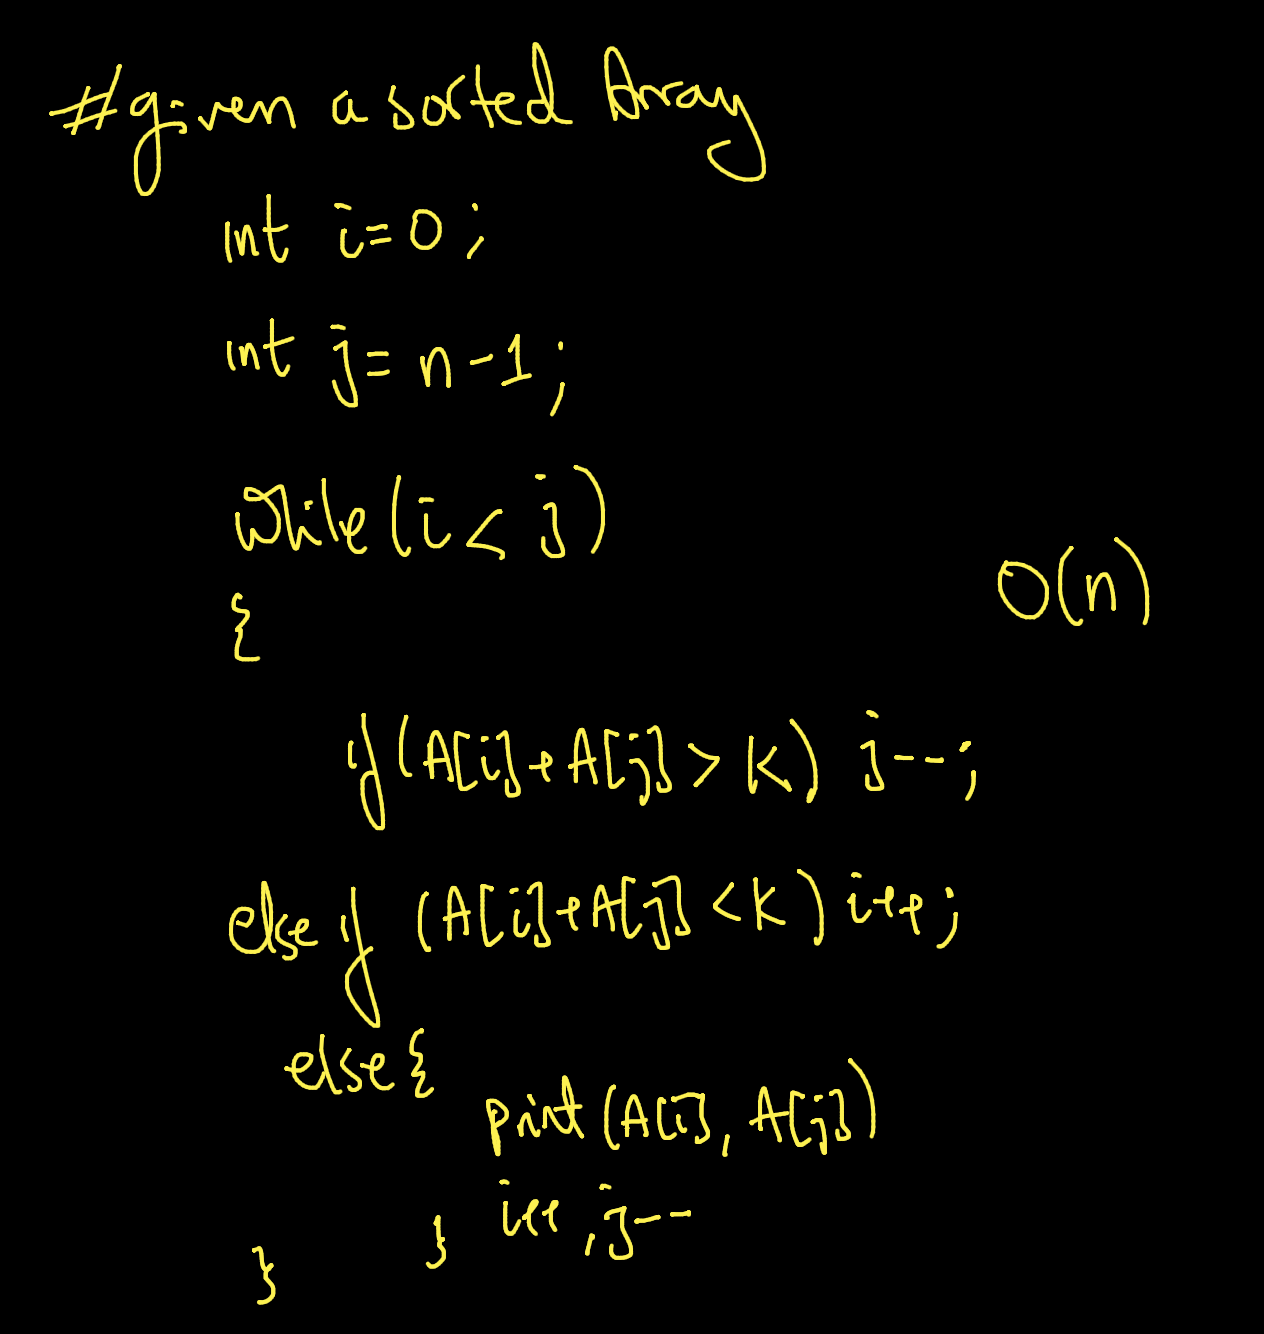 #given a sorted Array
int i=0;
int j=n-1;
while(i<j)
{
O(n)
if(A[i]+A[j]>K) j--;
else if (A[i]+A[j]<K) i++;
else{
print(A[i], A[j])
i++,j--
}
}